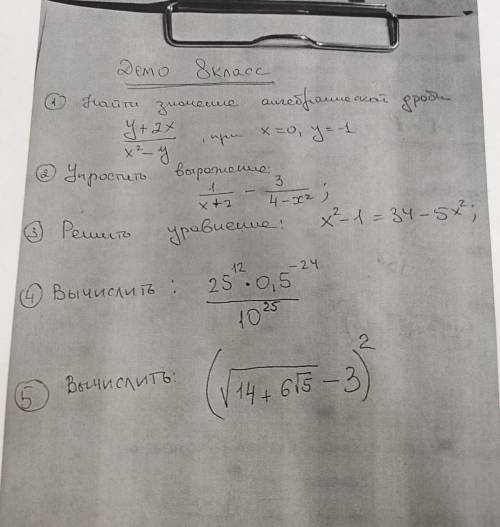 Демо 8класс
① Найти значение алгебраической дроби
(y+2x)/(x²-y), при x=0, y=-1
② Упростить выражение:
1/(x+2) - 3/(4-x²);
③ Решить уравнение: x²-1=34-5x²;
④ Вычислить: (25¹²·0,5⁻²⁴)/10²⁵
⑤ Вычислить: (√(14+6√5)-3)²